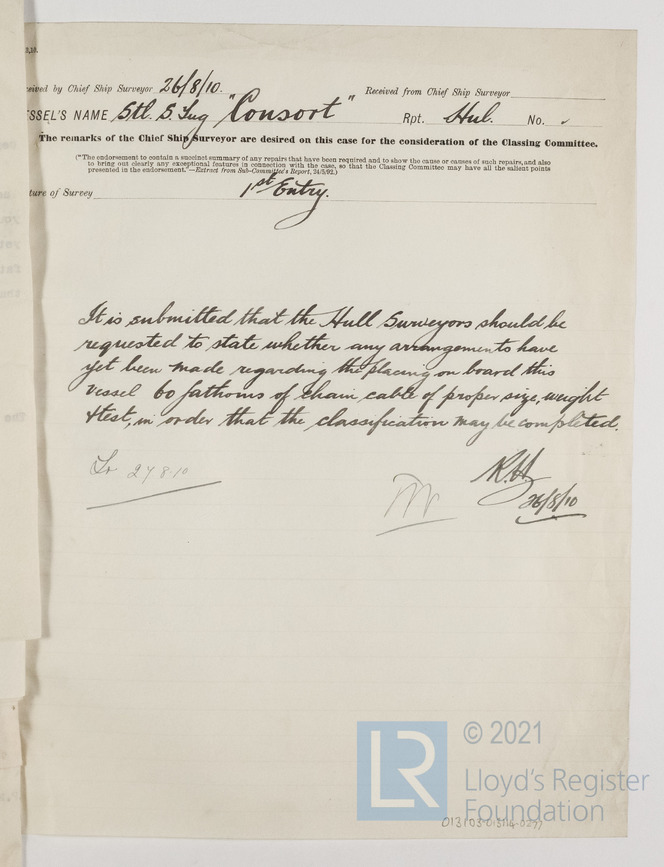 eceived by Chief Ship Surveyor 26/8/10. Received from Chief Ship Surveyor
ESSEL'S NAME Stl. S. Tug "Consort" Rpt. Hul. No.
The remarks of the Chief Ship Surveyor are desired on this case for the consideration of the Classing Committee.
("The endorsement to contain a succinct summary of any repairs that have been required and to show the cause or causes of such repairs, and also
to bring out clearly any exceptional features in connection with the case, so that the Classing Committee may have all the salient points
presented in the endorsement."—Extract from Sub-Committee's Report, 24/5/92.)
ture of Survey 1st Entry.
It is submitted that the Hull Surveyors should be
requested to state whether any arrangements have
yet been made regarding the placing on board this
vessel 60 fathoms of chain cable of proper size, weight
& test, in order that the classification may be completed.
Lr 27 8.10
R.H.
26/8/10
LR
© 2021
Lloyd's Register
Foundation